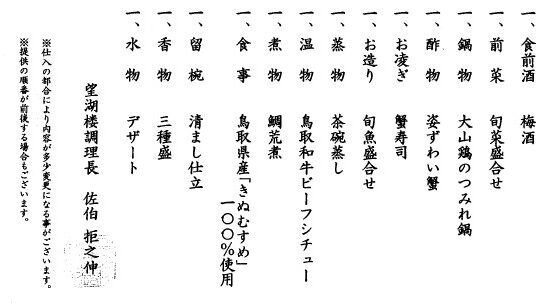 一、食前酒　梅酒
一、前菜　旬菜盛合せ
一、鍋物　大山鶏のつみれ鍋
一、酢物　姿ずわい蟹
一、お凌ぎ　蟹寿司
一、お造り　旬魚盛合せ
一、蒸物　茶碗蒸し
一、温物　鳥取和牛ビーフシチュー
一、煮物　鯛荒煮
一、食事　鳥取県産「きぬむすめ」
一〇〇％使用
一、留椀　清まし仕立
一、香物　三種盛
一、水物　デザート
望湖楼調理長　佐伯 拒之伸
※仕入の都合により内容が多少変更になる事がございます。
※提供の順番が前後する場合もございます。